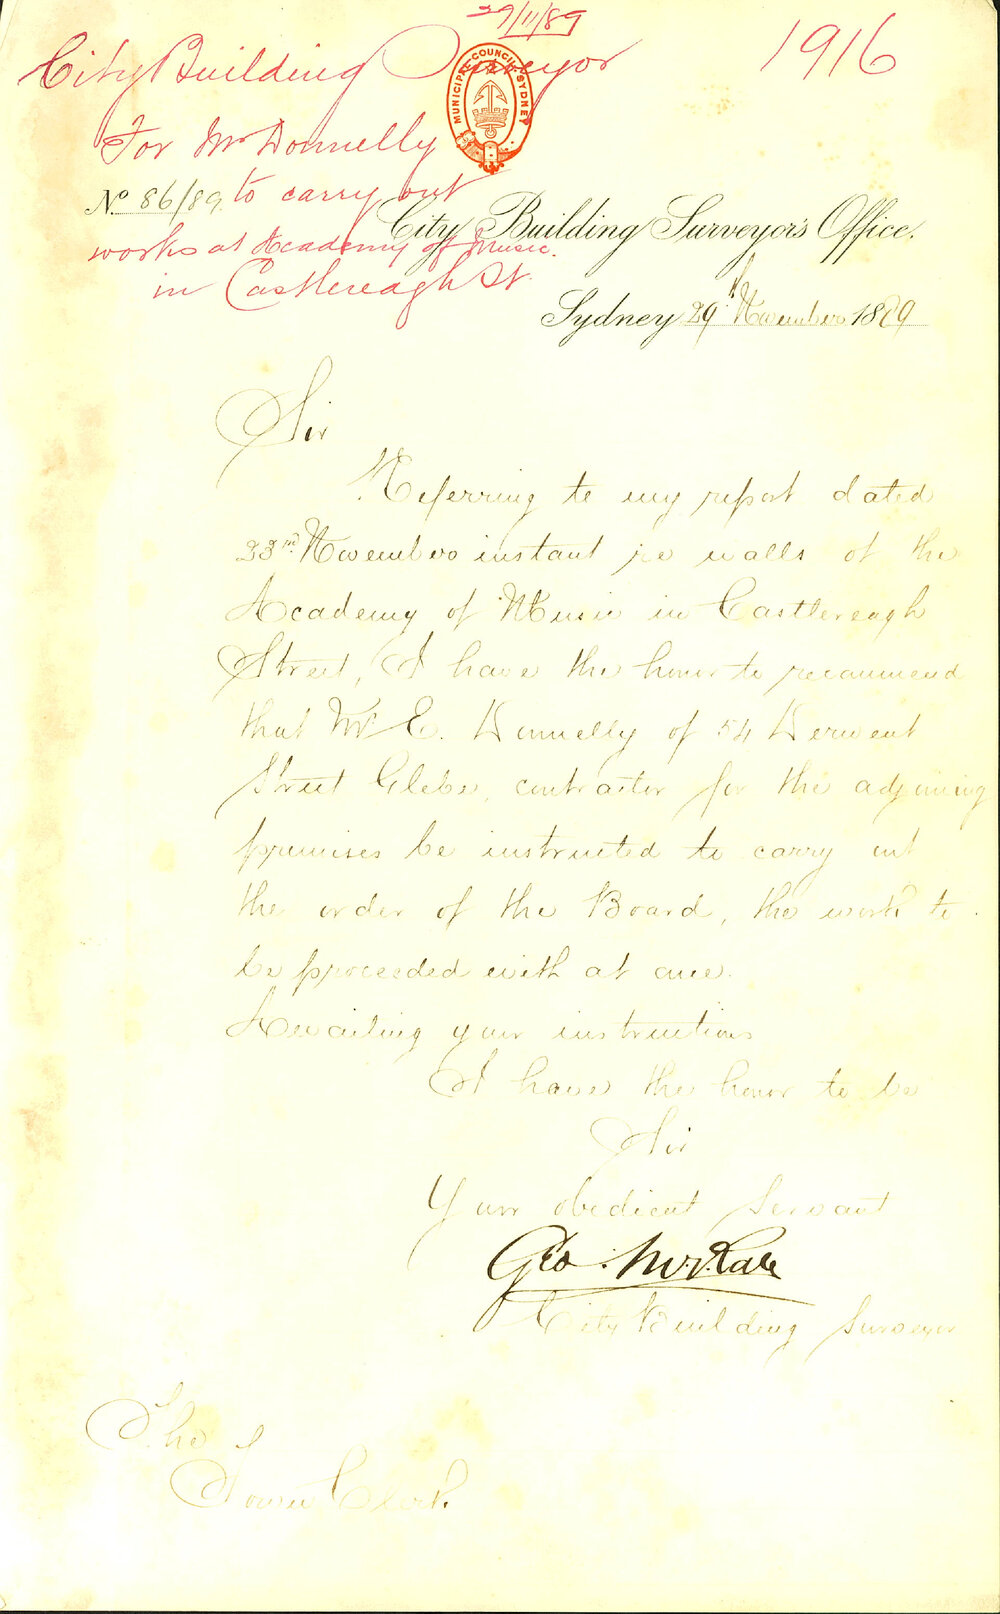 29/11/89
City Building Surveyor
1916
MUNICIPAL COUNCIL SYDNEY
For Mr Donnelly
No. 86/89. to carry out
City Building Surveyor's Office.
works at Academy of Music.
in Castlereagh St.
Sydney 29th November 1889
Sir
Referring to my report dated
23rd November instant re walls of the
Academy of Music in Castlereagh
Street, I have the honor to recommend
that Mr E. Donnelly of 54 Derwent
Street Glebe, contractor for the adjoining
premises be instructed to carry out
the order of the Board, the work to
be proceeded with at once.
Awaiting your instructions
I have the honor to be
Sir
Your obedient Servant
Geo. McRae
City Building Surveyor
The
Town Clerk.